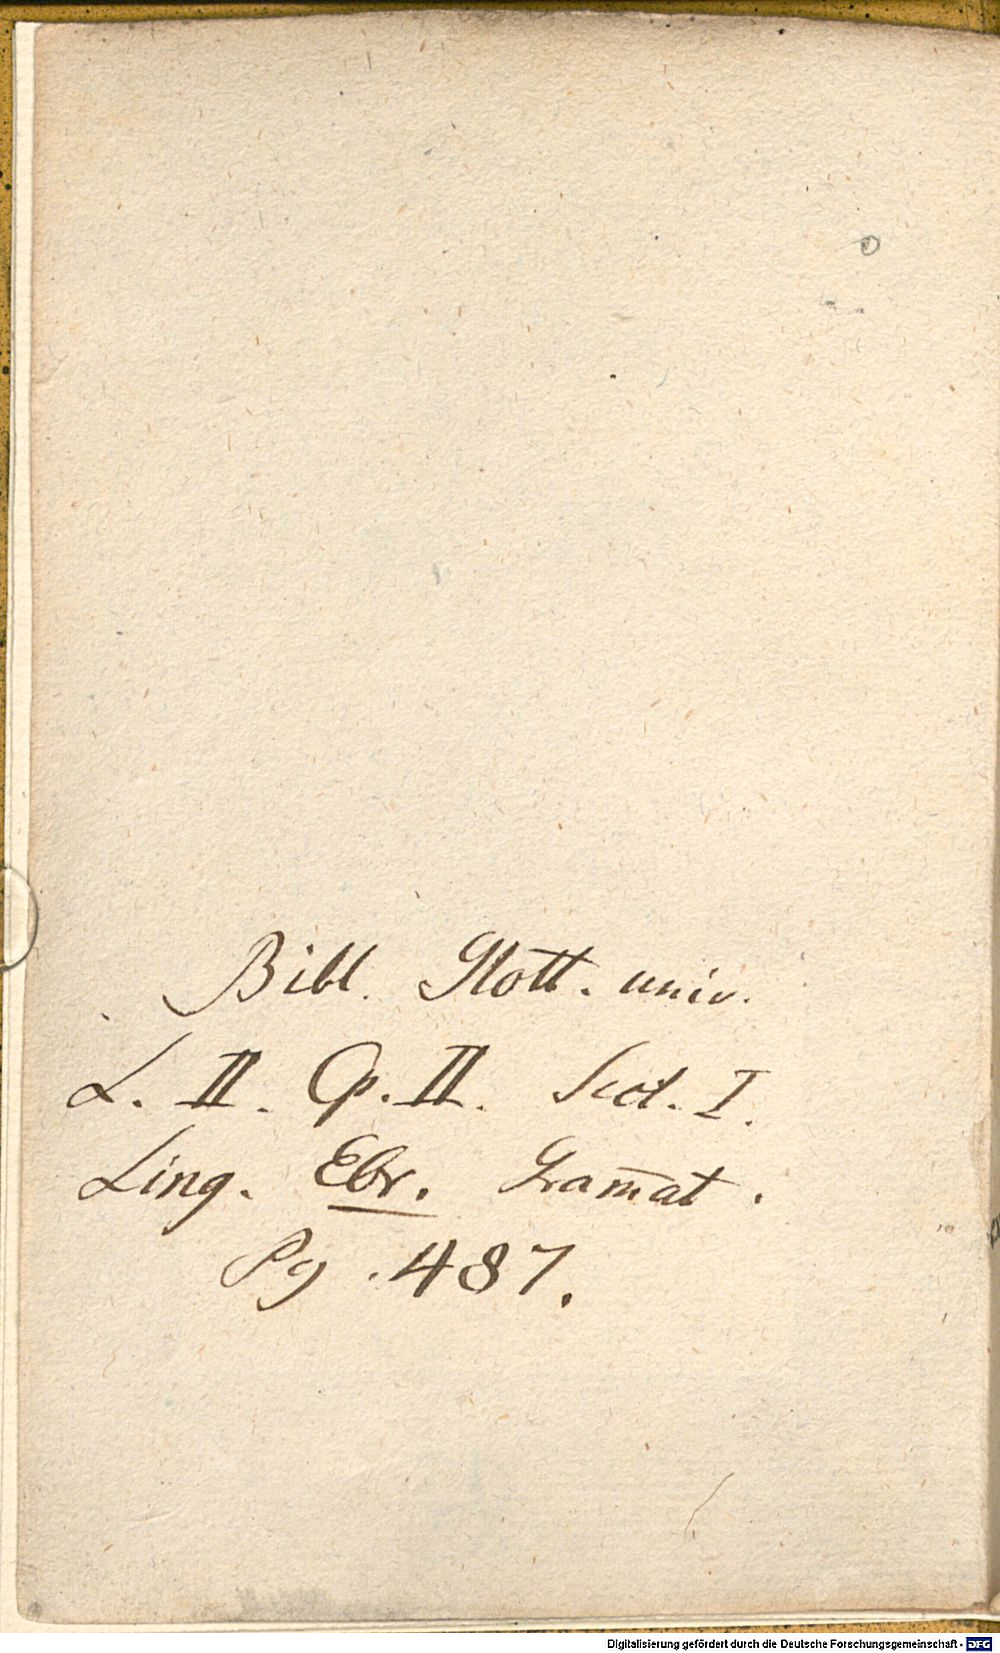 Bibl. Glott. univ.
L. II. Cp. II. Sect. I.
Ling. Ebr. Gram̅at.
Pg. 487.
Digitalisierung gefördert durch die Deutsche Forschungsgemeinschaft - DFG